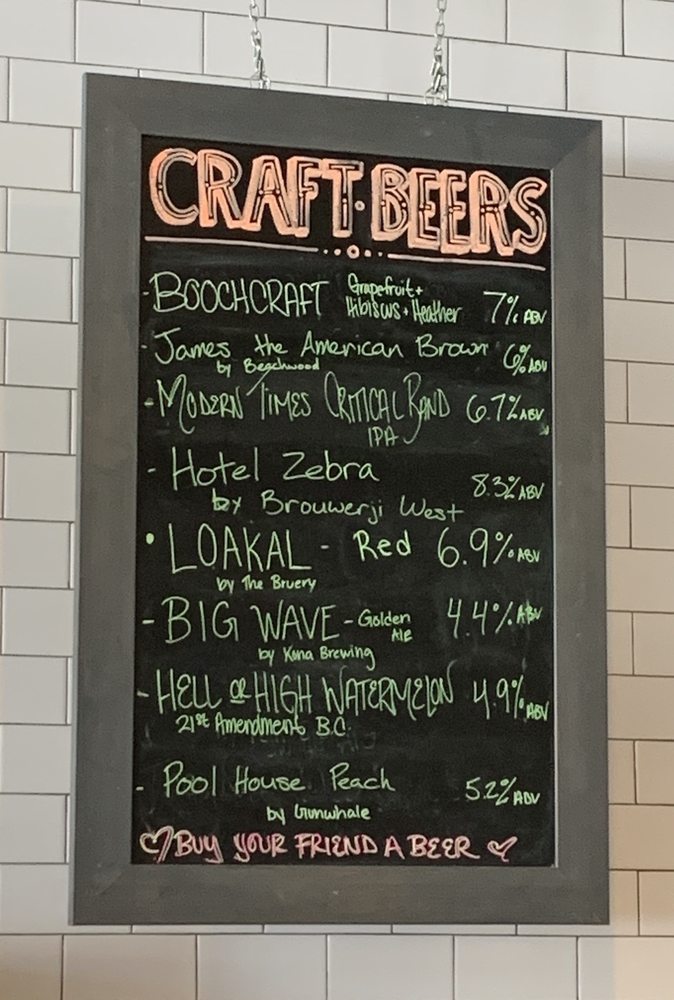 CRAFT·BEERS
- BOOCHCRAFT Grapefruit + Hibiscus + Heather 7% ABV
- James the American Brown 6% ABV
by Beachwood
- MODERN TIMES CRITICAL BAND 6.7% ABV
IPA
- Hotel Zebra 8.3% ABV
by Brouwerji West
• LOAKAL - Red 6.9% ABV
by The Bruery
- BIG WAVE - Golden Ale 4.4% ABV
by Kona Brewing
- HELL or HIGH WATERMELON 4.9% ABV
21st Amendment B.C.
- Pool House Peach 5.2% ABV
by Gunwhale
♡ BUY YOUR FRIEND A BEER ♡